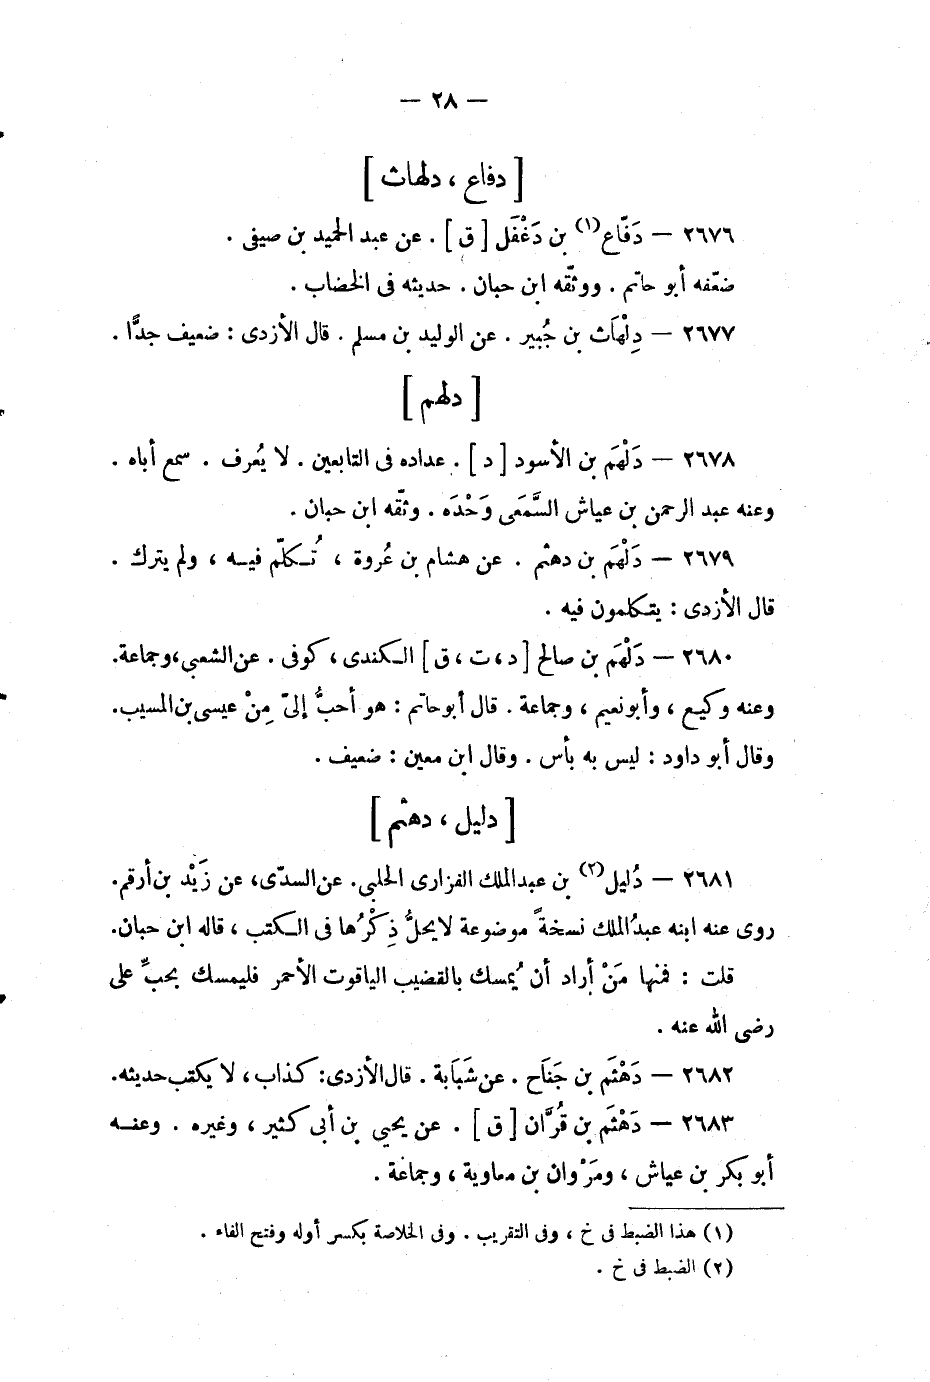 — ٢٨ —
[ دفاع ، دلهاث ]
٢٦٧٦ — دَفّاع(١) بن دَغْفَل [ ق ] . عن عبد الحميد بن صيفى .
ضعّفه أبو حاتم . ووثّقه ابن حبان . حديثه فى الخضاب .
٢٦٧٧ — دِلْهَاث بن جُبير . عن الوليد بن مسلم . قال الأزدى : ضعيف جدًّا .
[ دلهم ]
٢٦٧٨ — دَلْهَم بن الأسود [ د ] . عداده فى التابعين . لا يُعرف . سمع أباه .
وعنه عبد الرحمن بن عياش السَّمَعى وَحْدَه . وثّقه ابن حبان .
٢٦٧٩ — دَلْهَم بن دهثم . عن هشام بن عُروة ، تُـكلّم فيـه ، ولم يترك .
قال الأزدى : يتكلمون فيه .
٢٦٨٠ — دَلْهَم بن صالح [ د ، ت ، ق ] الـكندى ، كوفى . عن الشعبي ، وجماعة .
وعنه وكيـع ، وأبو نعيم ، وجماعة . قال أبو حاتم : هو أحبُّ إلىّ مِنْ عيسى بن المسيب .
وقال أبو داود : ليس به بأس . وقال ابن معين : ضعيف .
[ دليل ، دهثم ]
٢٦٨١ — دُليل(٢) بن عبد الملك الفزارى الحلبي . عن السدّى ، عن زَيْد بن أرقم .
روى عنه ابنه عبدُ الملك نسخةً موضوعة لا يحلُّ ذِكْرُها فى الـكتب ، قاله ابن حبان .
قلت : فمنها مَنْ أراد أن يُمسك بالقضيب الياقوت الأحمر فليمسك بحبِّ على
رضى الله عنه .
٢٦٨٢ — دَهْثَم بن جَنَاح . عن شَبَابة . قال الأزدى : كذاب ، لا يكتب حديثه .
٢٦٨٣ — دَهْثَم بن قُرَّان [ ق ] . عن يحيي بن أبى كثير ، وغيره . وعنـه
أبو بكر بن عياش ، ومَرْوان بن معاوية ، وجماعة .
(١) هذا الضبط فى خ ، وفى التقريب . وفى الخلاصة بكسر أوله وفتح الفاء .
(٢) الضبط فى خ .